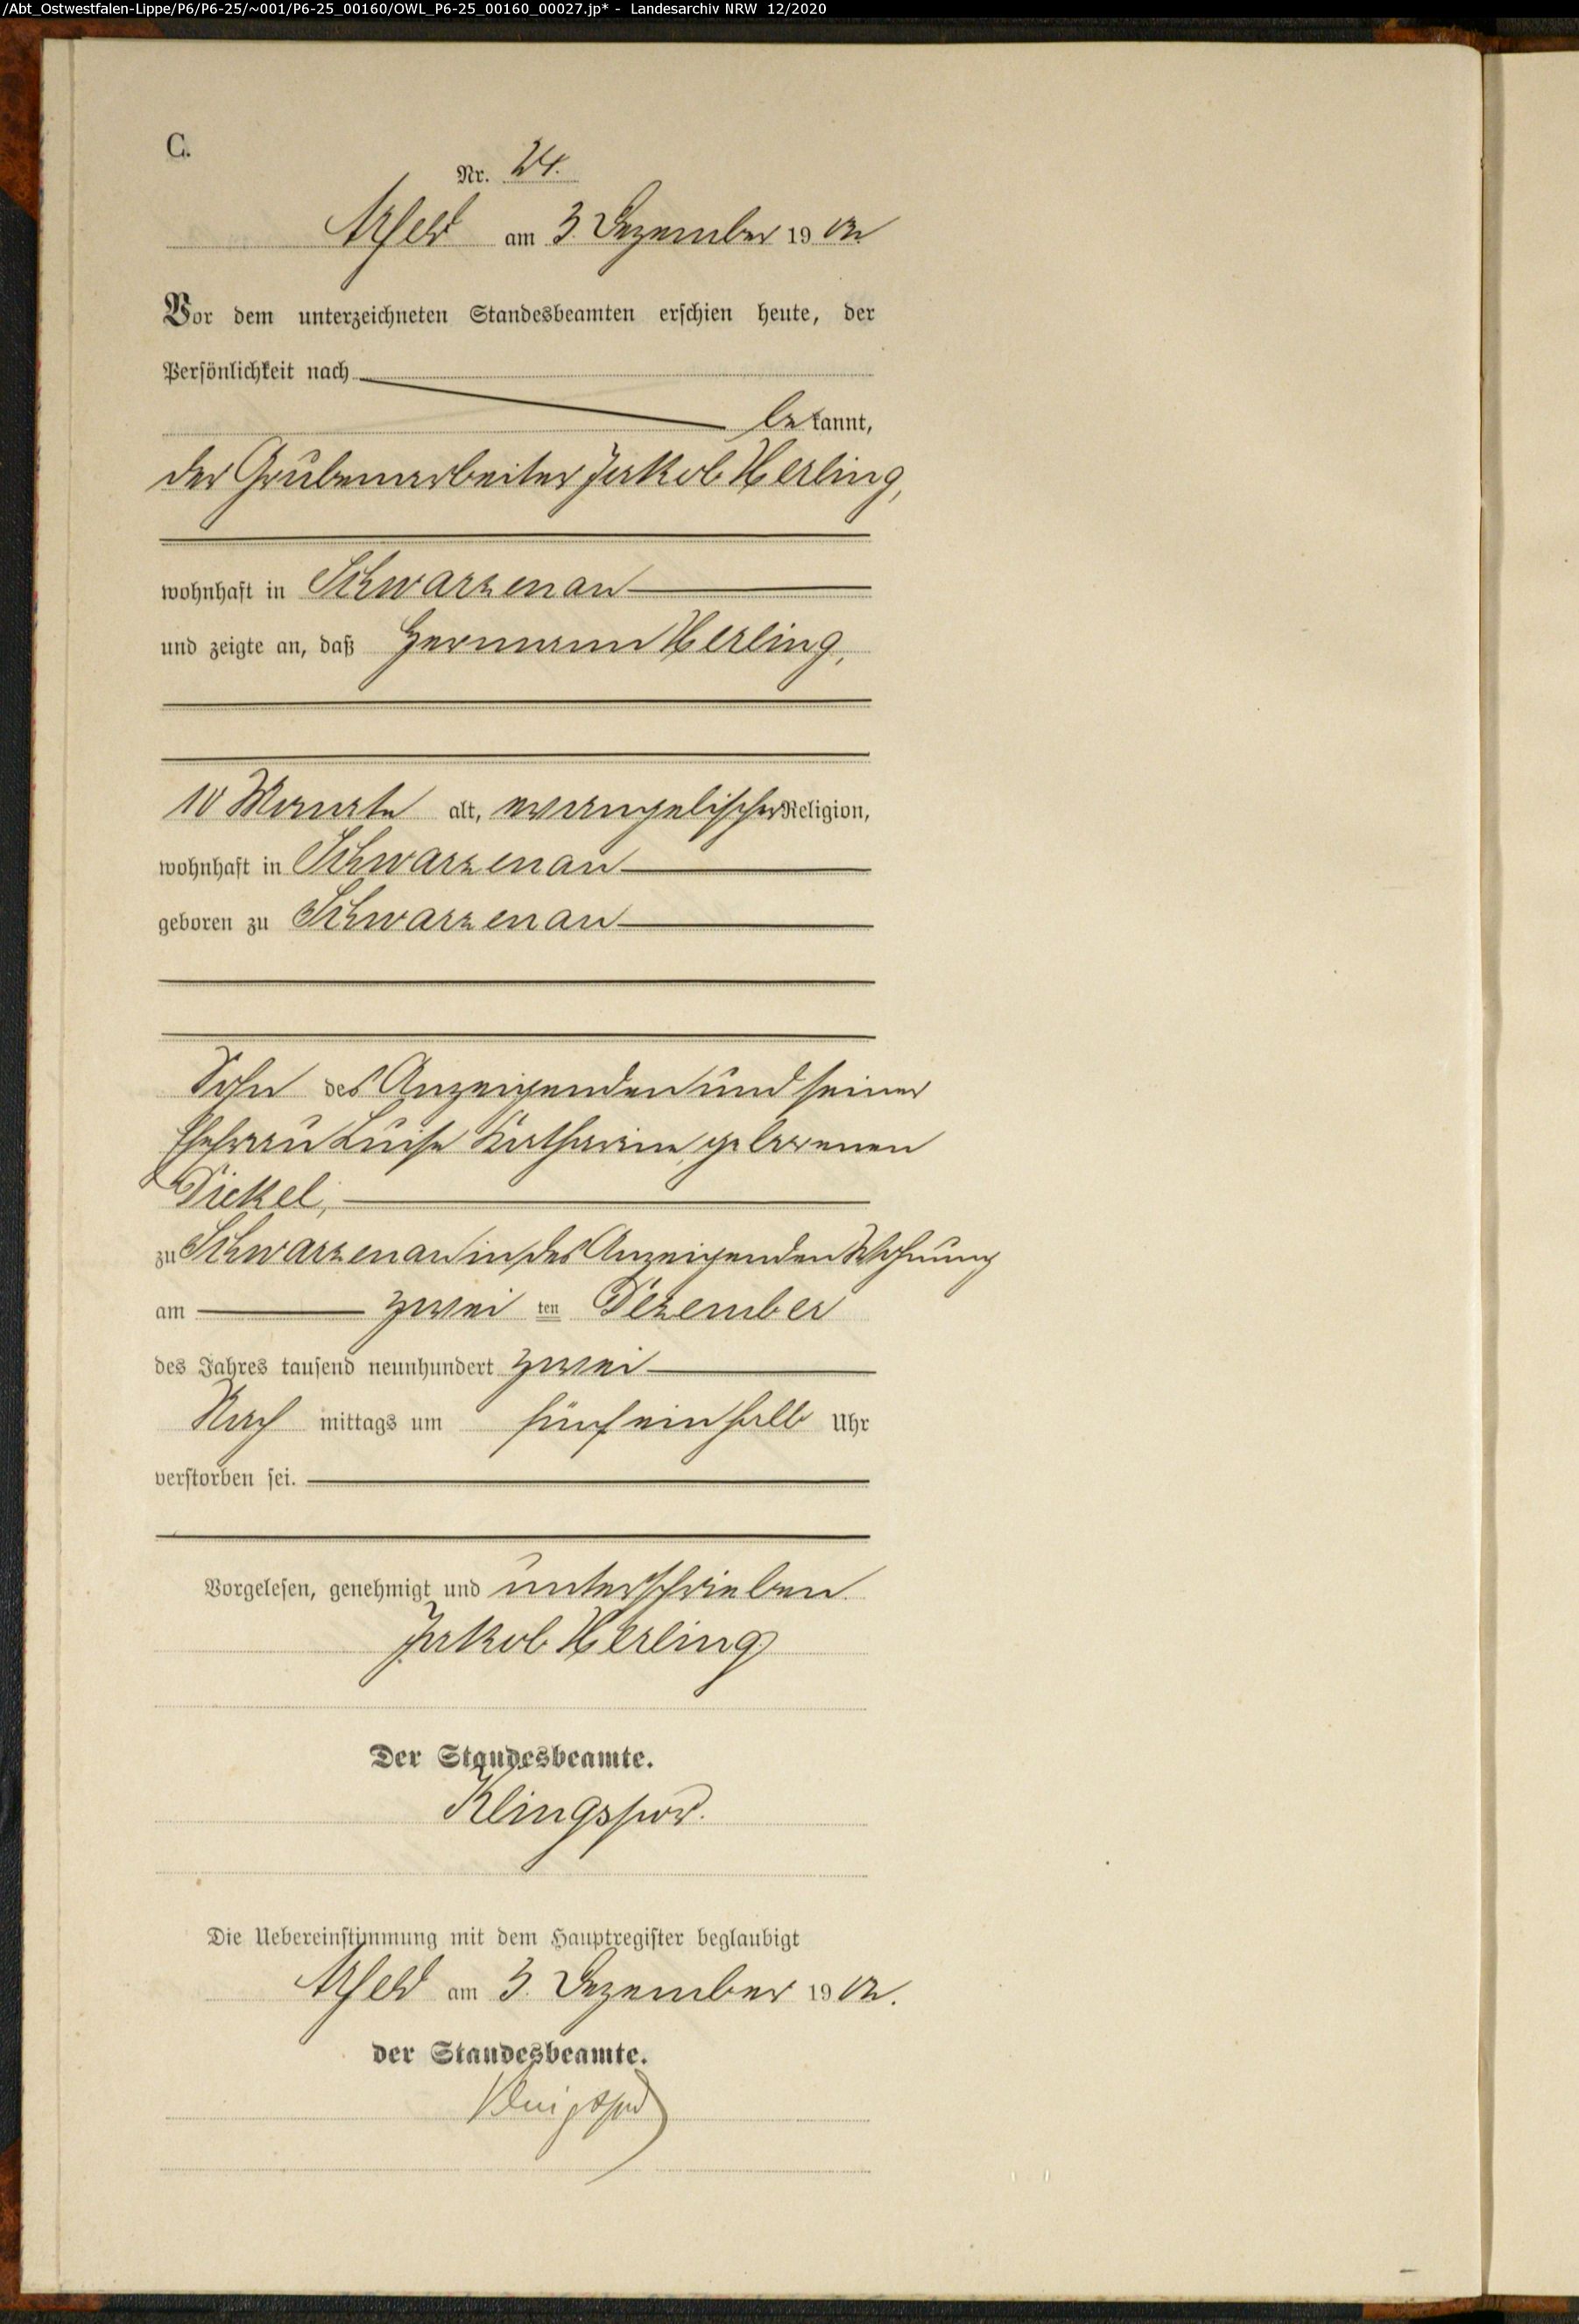 /Abt_Ostwestfalen-Lippe/P6/P6-25/~001/P6-25_00160/OWL_P6-25_00160_00027.jp* - Landesarchiv NRW 12/2020
C.
Nr. 24.
Arfeld am 3. Dezember 19 02
Vor dem unterzeichneten Standesbeamten erschien heute, der
Persönlichkeit nach
bekannt,
der Grubenarbeiter Jakob Herling,
wohnhaft in Schwarzenau
und zeigte an, daß Hermann Herling,
10 Monate alt, evangelischer Religion,
wohnhaft in Schwarzenau
geboren zu Schwarzenau
Sohn des Anzeigenden und seiner
Ehefrau Luise Katharine, geborenen
Dickel,
zu Schwarzenau in des Anzeigenden Wohnung
am zwei ten Dezember
des Jahres tausend neunhundert zwei
Nach mittags um fünf einhalb Uhr
verstorben sei.
Vorgelesen, genehmigt und unterschrieben.
Jakob Herling
Der Standesbeamte.
Klingspor.
Die Uebereinstimmung mit dem Hauptregister beglaubigt
Arfeld am 3. Dezember 19 02.
der Standesbeamte.
Klingspor